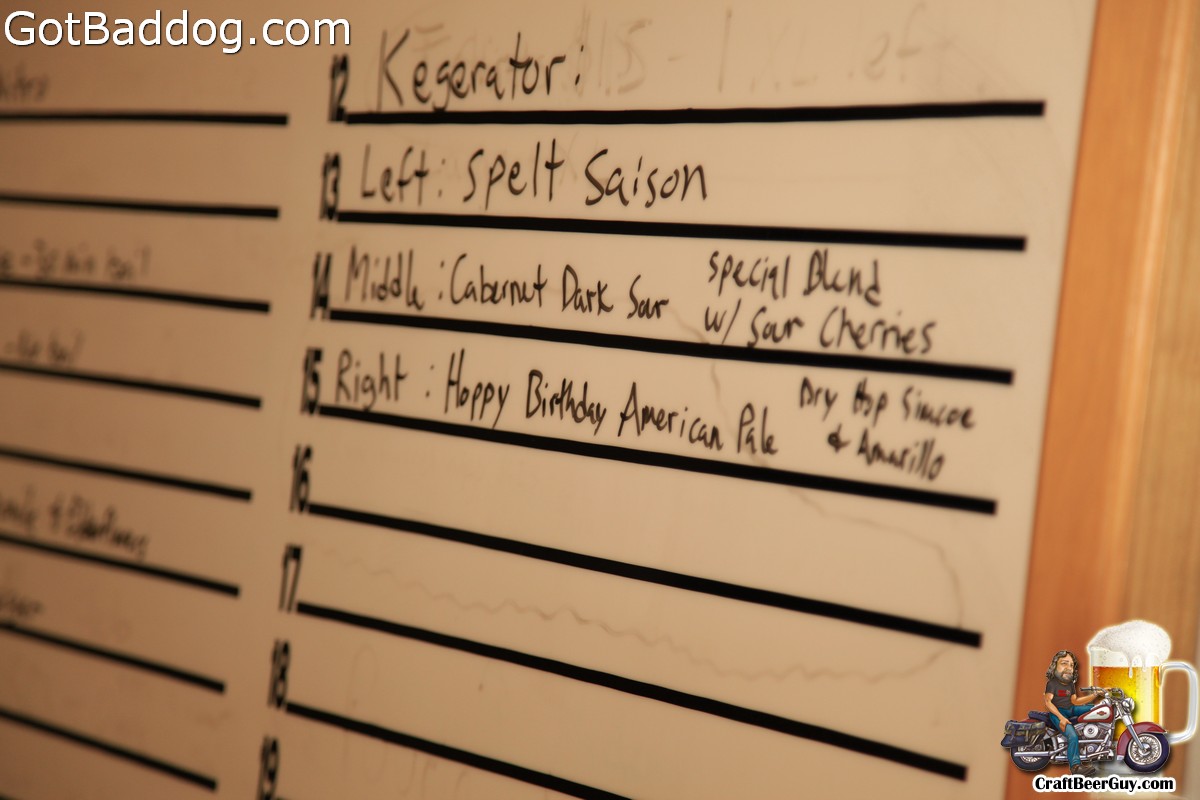 GotBaddog.com
12 Kegerator:
13 Left: Spelt Saison
14 Middle: Cabernet Dark Sour Special Blend
w/ Sour Cherries
15 Right: Hoppy Birthday American Pale Dry Hop Simcoe
& Amarillo
16
17
18
19
CraftBeerGuy.com